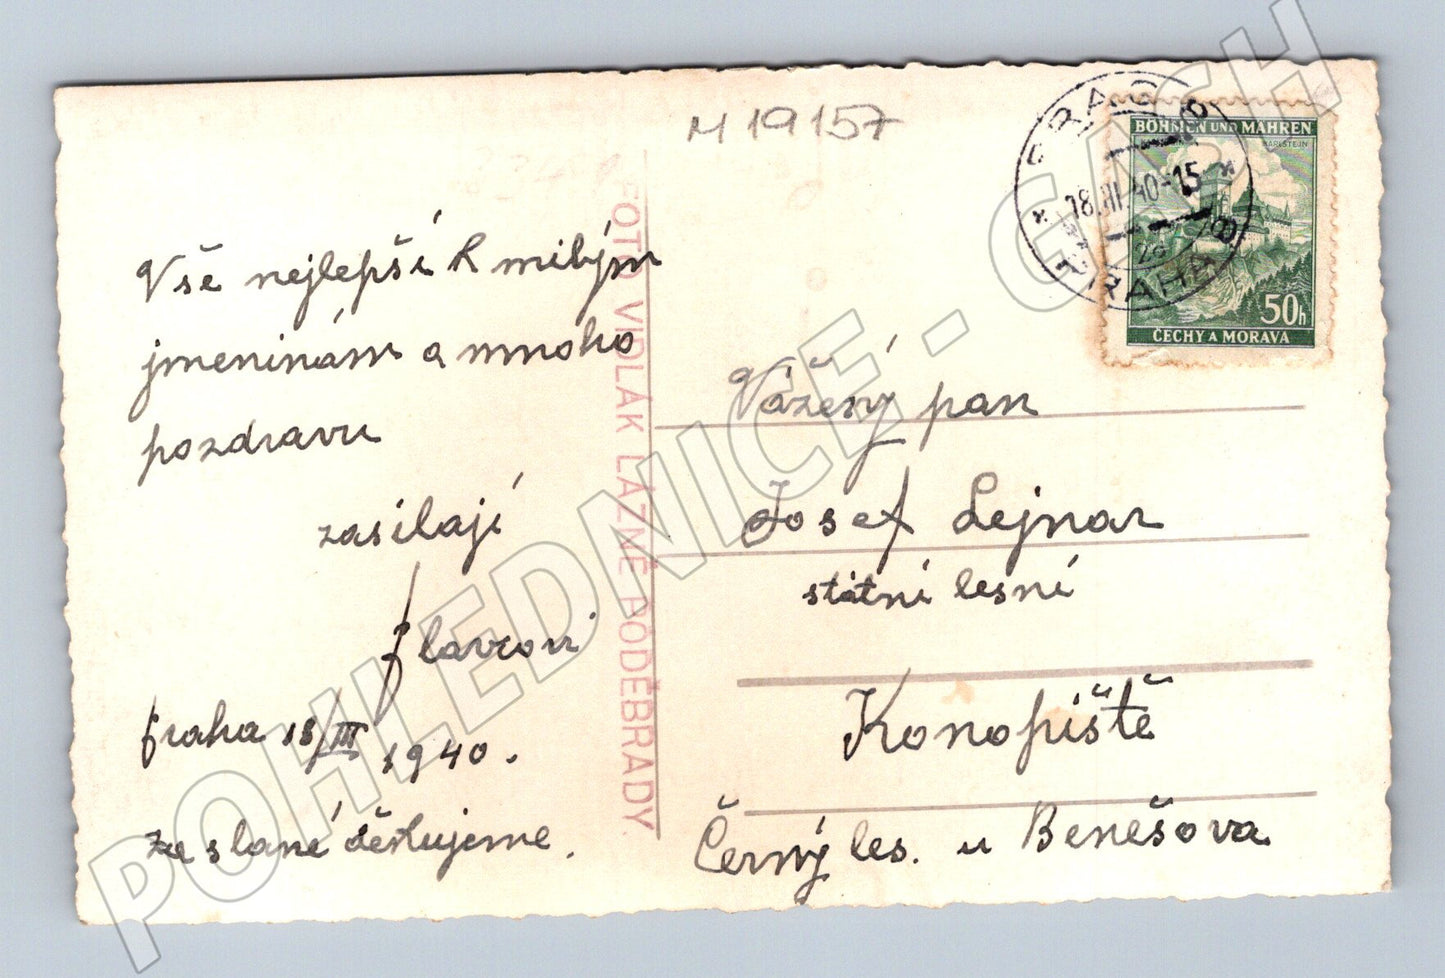 M 19157
Vše nejlepší k milým
jmeninám a mnoho
pozdravu
zasilají
Praha 18/III 1940.
Za slané děkujeme.
FOTO VIDLÁK LÁZNĚ PODĚBRADY.
PRAG 8
18.III.40-15
PRAHA 8
BÖHMEN UND MÄHREN
KARLSTEJN
50h
ČECHY A MORAVA
Vážený pan
Josef Lejnar
státní lesní
Konopiště
Černý les. u Benešova
POHLEDNICE - CASH